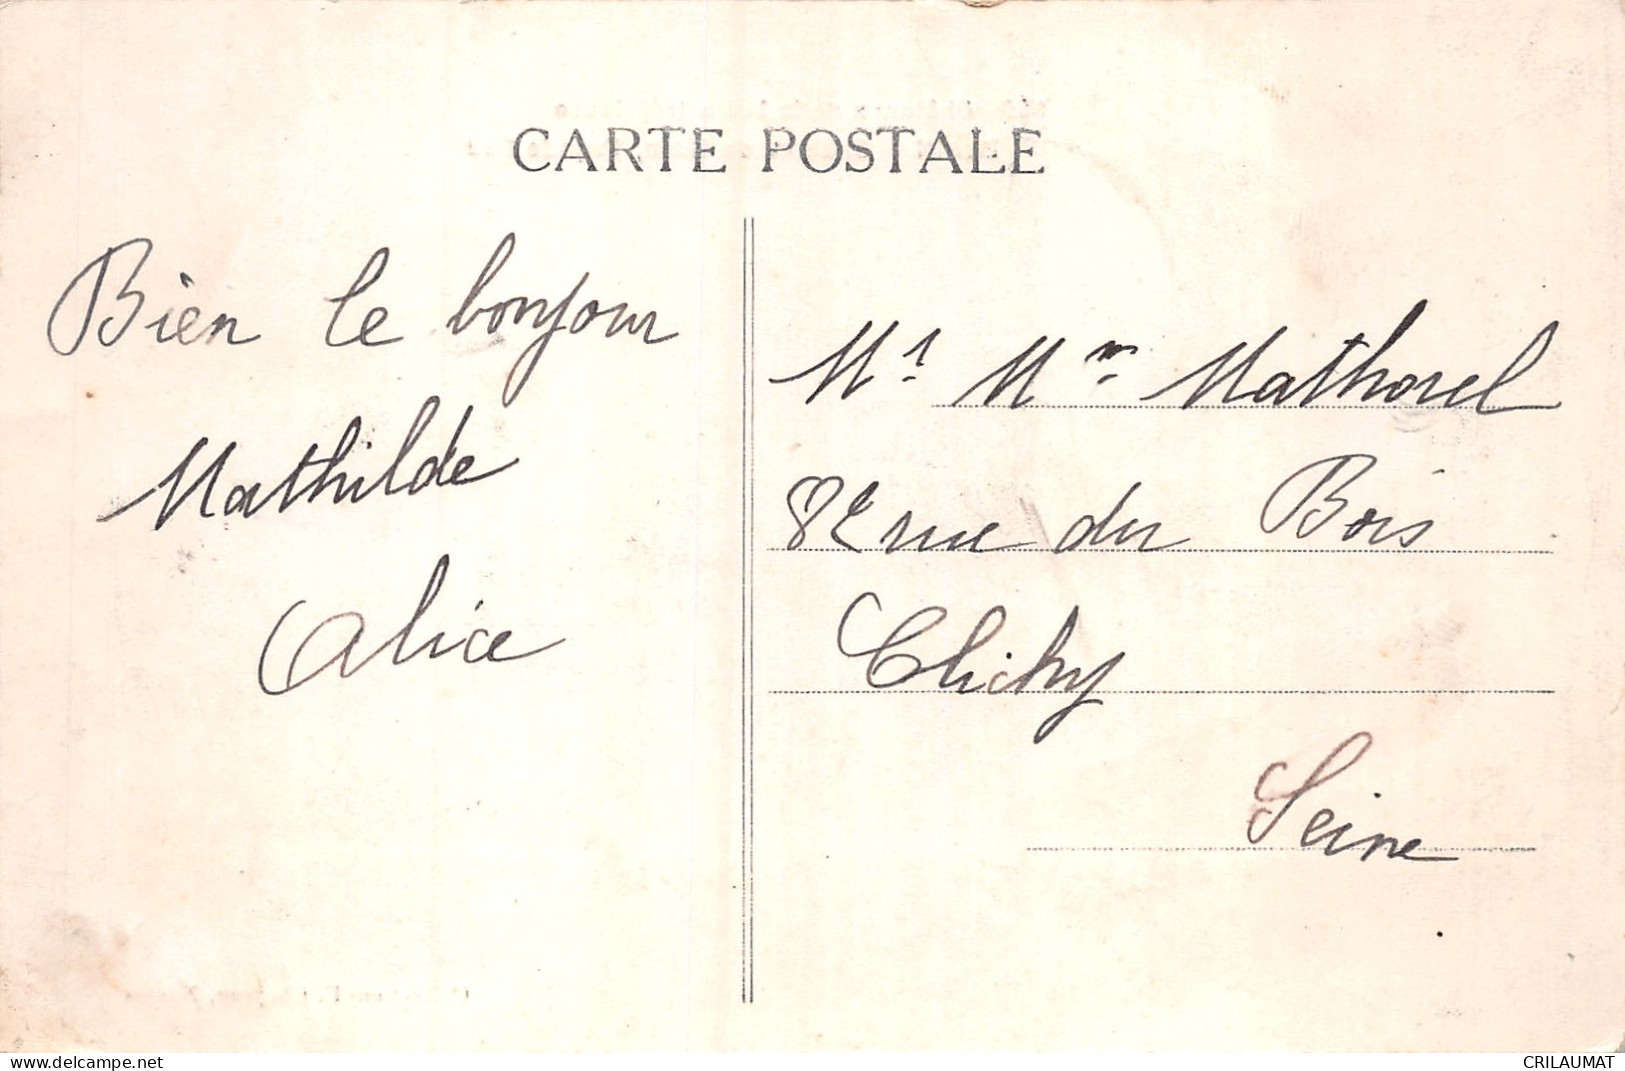 CARTE POSTALE
Bien le bonjour
Mathilde
Alice
Mr. Mm. Mathorel
82 rue du Bois
Clichy
Seine
www.delcampe.net
CRILAUMAT